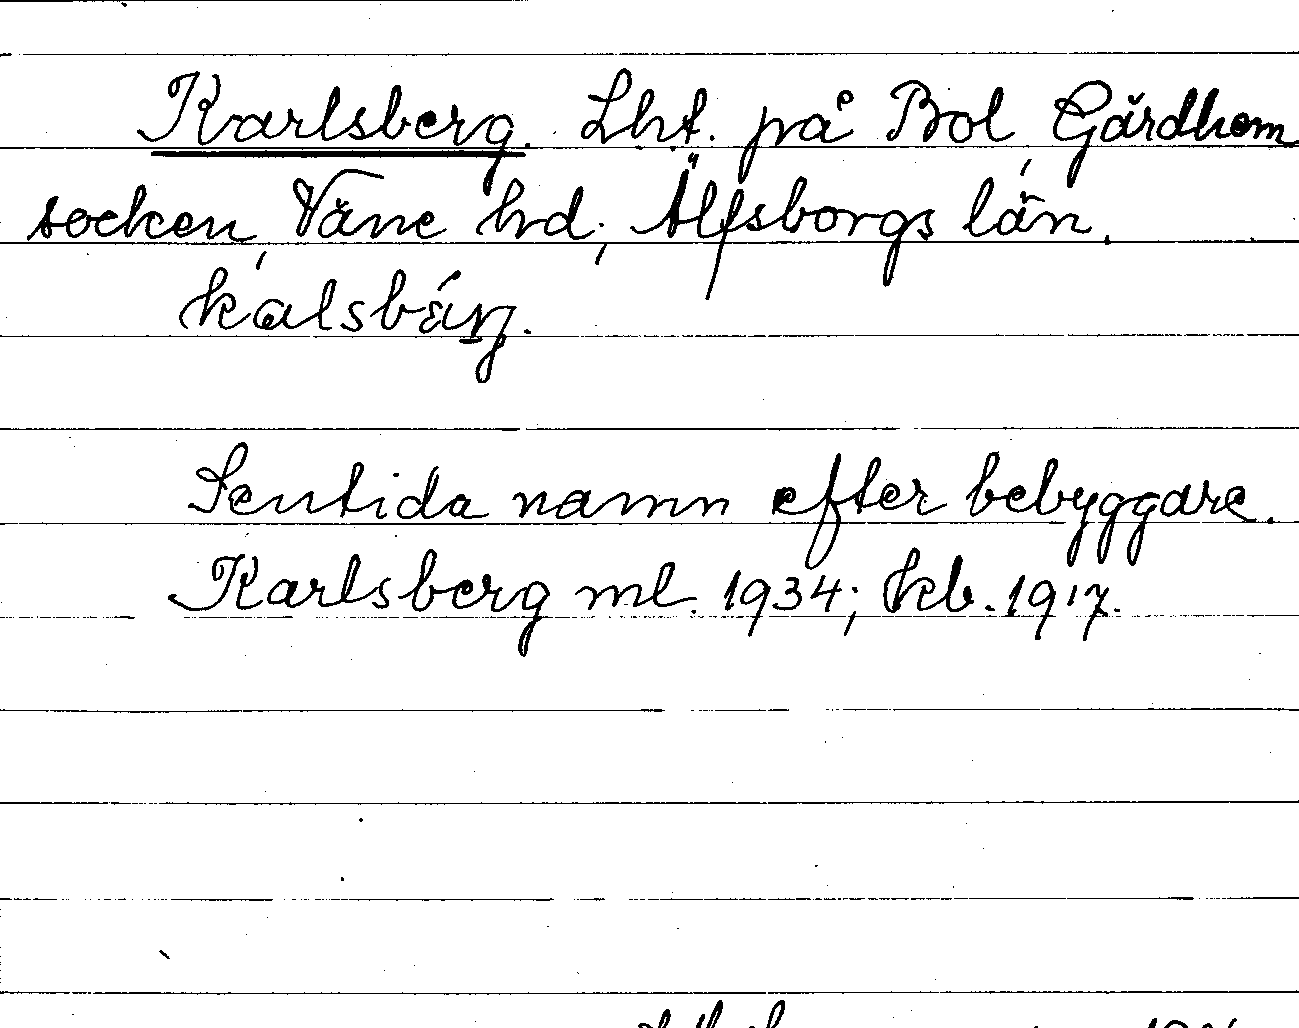 Karlsberg. Lht. på Bol, Gärdhem
socken, Väne hd, Älfsborgs län.
kalsbárj.
Sentida namn efter bebyggare.
Karlsberg ml. 1934; kb. 1917.